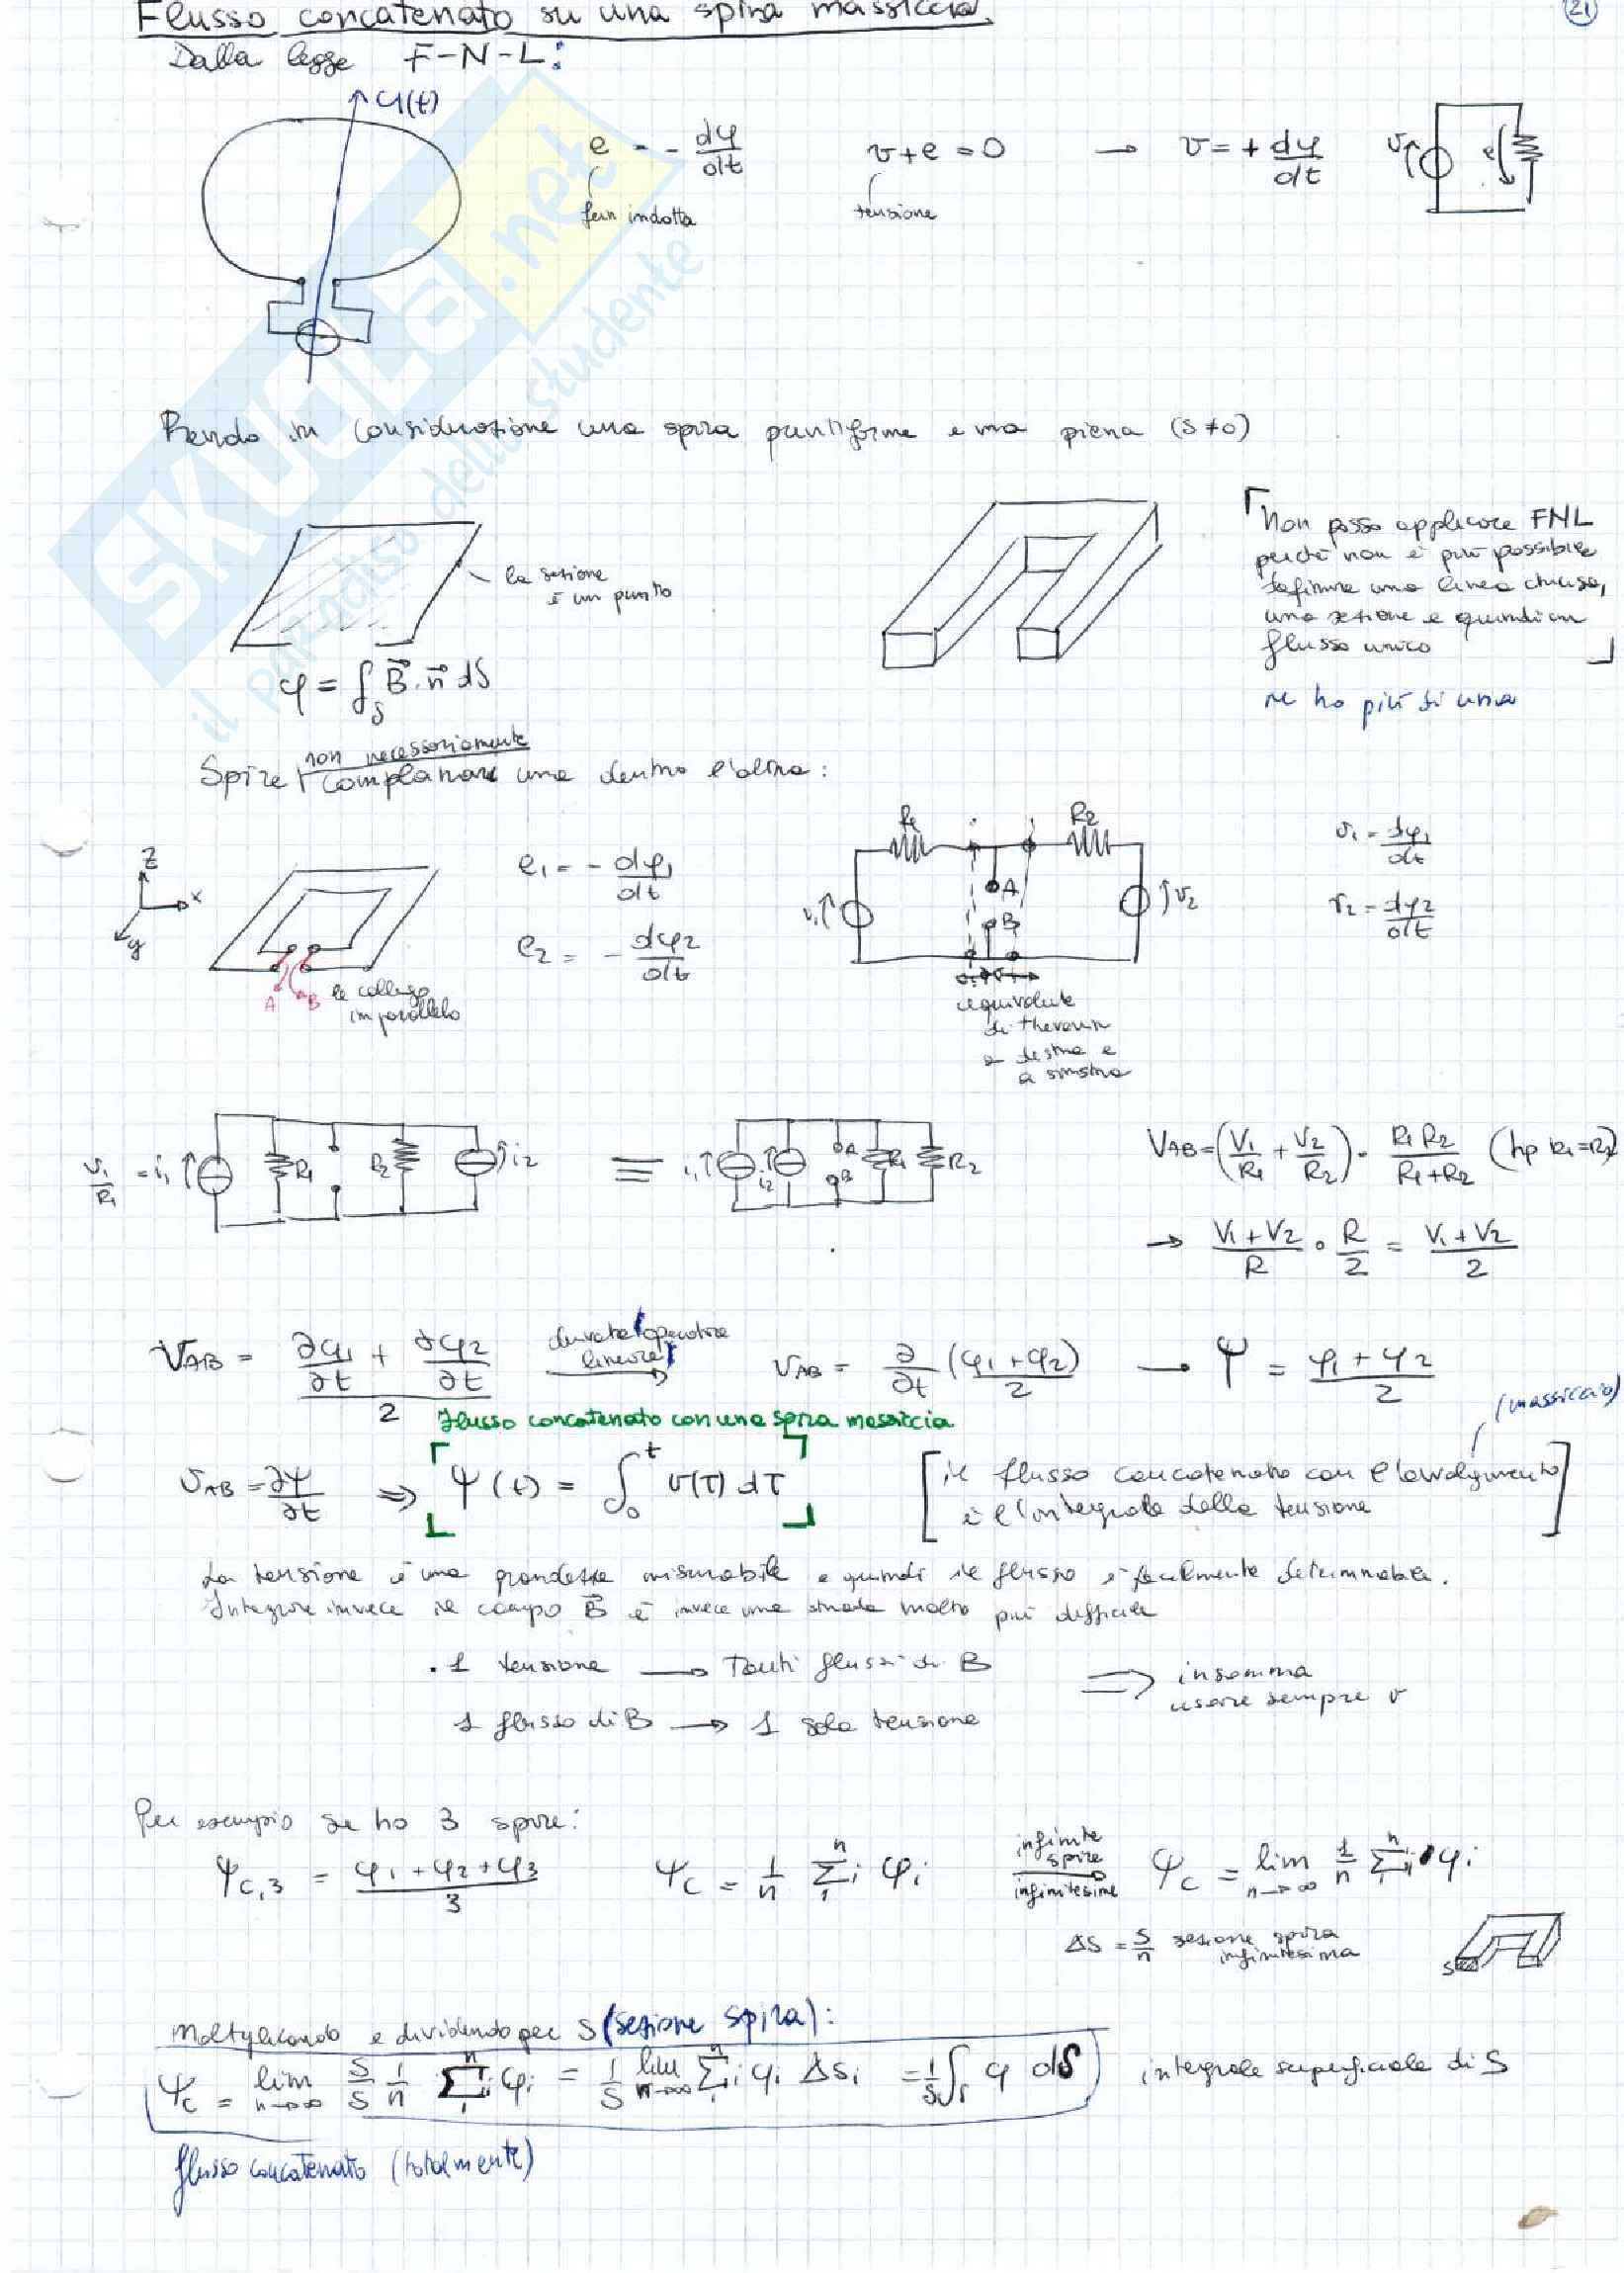 Flusso concatenato su una spira massiccia.
21
Dalla legge F-N-L:
φ(t)
e = - dφ/dt
v+e = 0 → v = + dφ/dt
v e
fem indotta
tensione
SKUOLA.net
il paradiso dello studente
Prendo in considerazione una spira puntiforme e una piena (S≠0)
la sezione
è un punto
Non posso applicare FNL
perché non è più possibile
definire una linea chiusa,
una sezione e quindi un
flusso unico
ne ho più di una
φ = ∫_S B⃗·n⃗ dS
non necessariamente
Spire complanari una dentro l'altra:
z x y
e₁ = - dφ₁/dt
e₂ = - dφ₂/dt
A B
le collego
in parallelo
R₁ R₂
v₁ A B v₂
equivalente
di thevenin
a destra e
a sinistra
v₁ = dφ₁/dt
v₂ = dφ₂/dt
v₁/R₁ = i₁ R₁ R₂ i₂ ≡ i₁ i₂ A B R₁ R₂
V_AB = (V₁/R₁ + V₂/R₂) · R₁R₂/(R₁+R₂) (hp R₁=R₂)
→ (V₁+V₂)/R · R/2 = (V₁+V₂)/2
V_AB = (∂φ₁/∂t + ∂φ₂/∂t)/2 derivata (operatore lineare) → v_AB = ∂/∂t (φ₁+φ₂)/2 → Ψ = (φ₁+φ₂)/2
Flusso concatenato con una spira massiccia
(massiccio)
v_AB = ∂ψ/∂t ⇒ ψ(t) = ∫₀ᵗ v(τ) dτ
[il flusso concatenato con l'avvolgimento
è l'integrale della tensione]
La tensione è una grandezza misurabile e quindi il flusso è facilmente determinabile.
Integrare invece il campo B⃗ è invece una strada molto più difficile
. 1 tensione → Tanti flussi di B
1 flusso di B → 1 sola tensione
⇒ insomma
usare sempre v
Per esempio se ho 3 spire:
ψ_C,3 = (φ₁+φ₂+φ₃)/3
ψ_C = 1/n Σ₁ⁿᵢ φᵢ
infinite
spire
infinitesime
ψ_C = lim n→∞ 1/n Σ₁ⁿᵢ φᵢ
ΔS = S/n sezione spira
infinitesima
S
Moltiplicando e dividendo per S (sezione spira):
ψ_C = lim n→∞ S/S 1/n Σ₁ⁿᵢ φᵢ = 1/S lim n→∞ Σ₁ⁿᵢ φᵢ ΔSᵢ = 1/S ∫_S φ dS
integrale superficiale di S
flusso concatenato (totalmente)